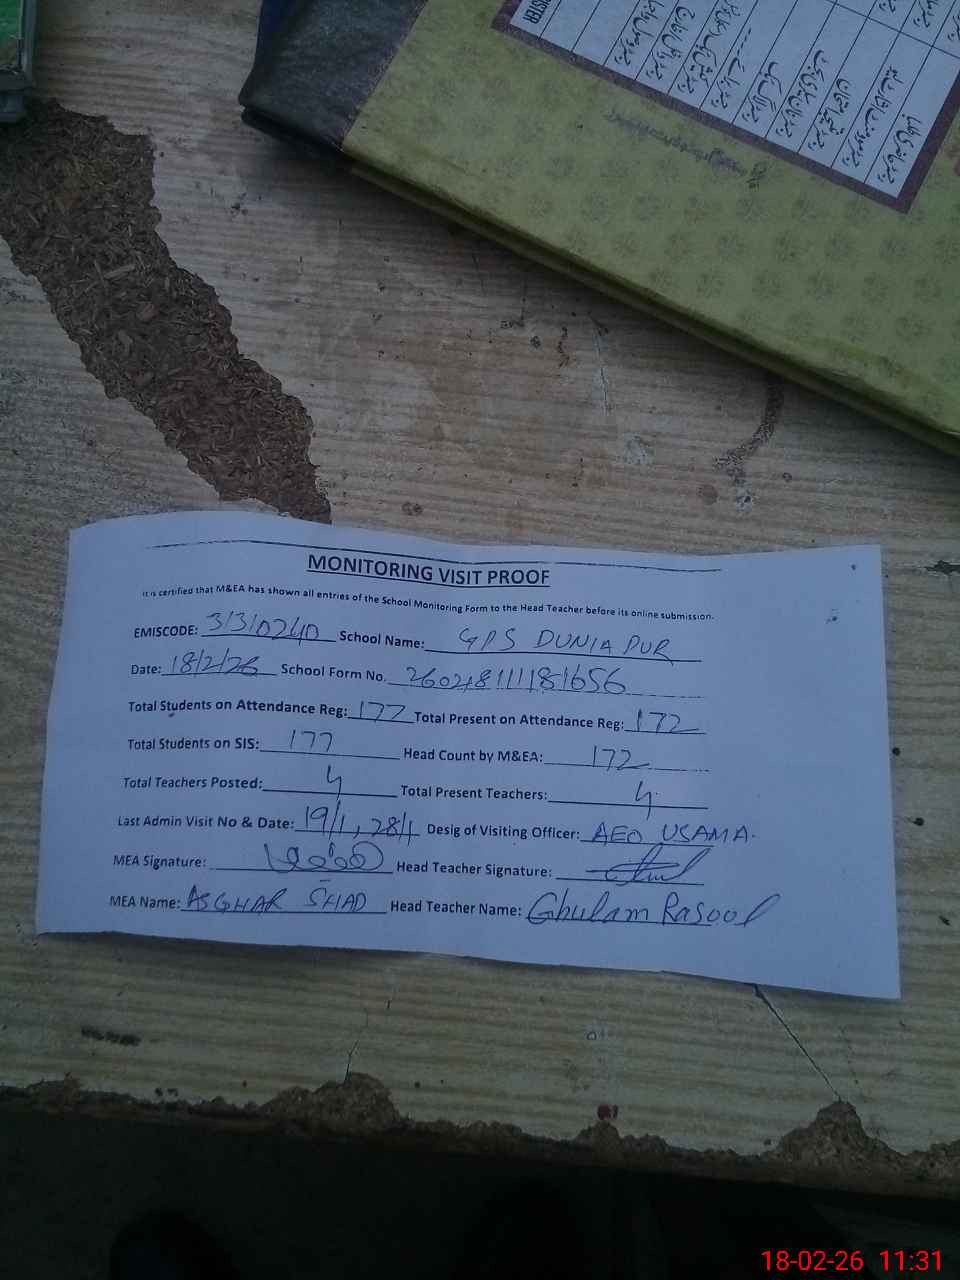 MONITORING VISIT PROOF
It is certified that M&EA has shown all entries of the School Monitoring Form to the Head Teacher before its online submission.
EMISCODE: 31310240 School Name: GPS DUNIA PUR
Date: 18/2/26 School Form No. 260218111181656
Total Students on Attendance Reg: 177 Total Present on Attendance Reg: 172
Total Students on SIS: 177 Head Count by M&EA: 172
Total Teachers Posted: 4 Total Present Teachers: 4
Last Admin Visit No & Date: 19/1, 28/1 Desig of Visiting Officer: AEO USAMA.
MEA Signature: Head Teacher Signature:
MEA Name: ASGHAR SHAD Head Teacher Name: Ghulam Rasool
18-02-26 11:31